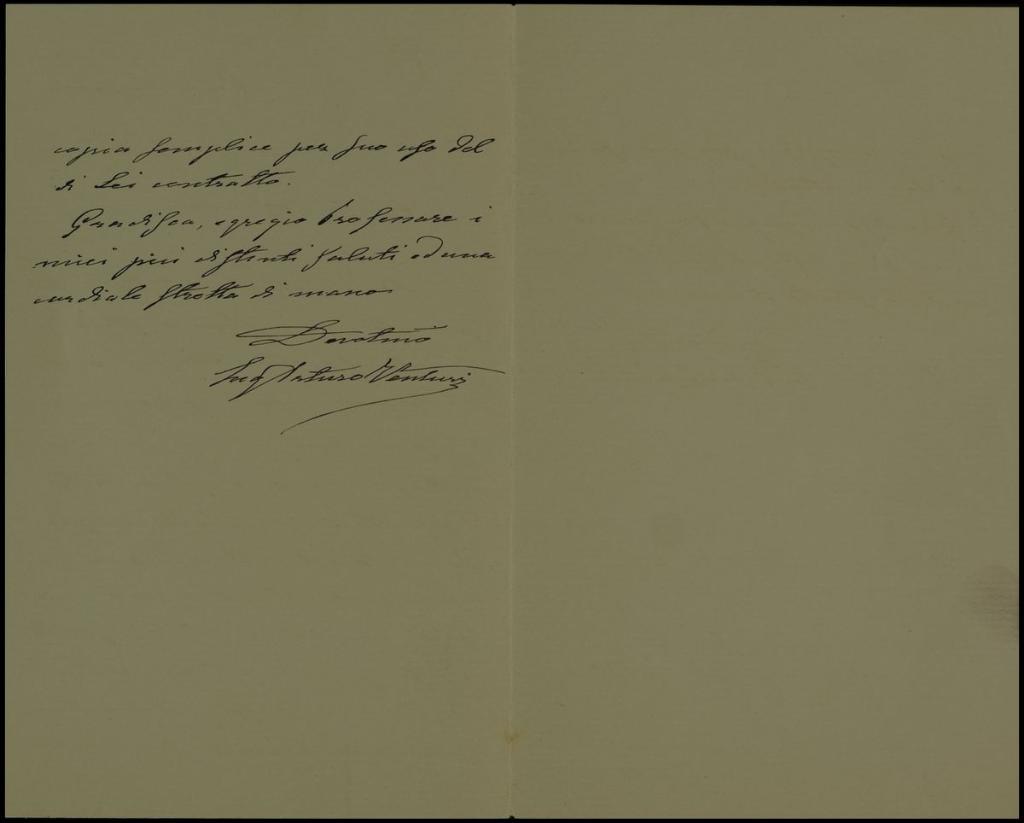 copia semplice per suo uso del
di Lei contratto.
Gradisca, egregio Professore i
miei più distinti saluti ed una
cordiale stretta di mano
Devotmo
Ing Arturo Venturi